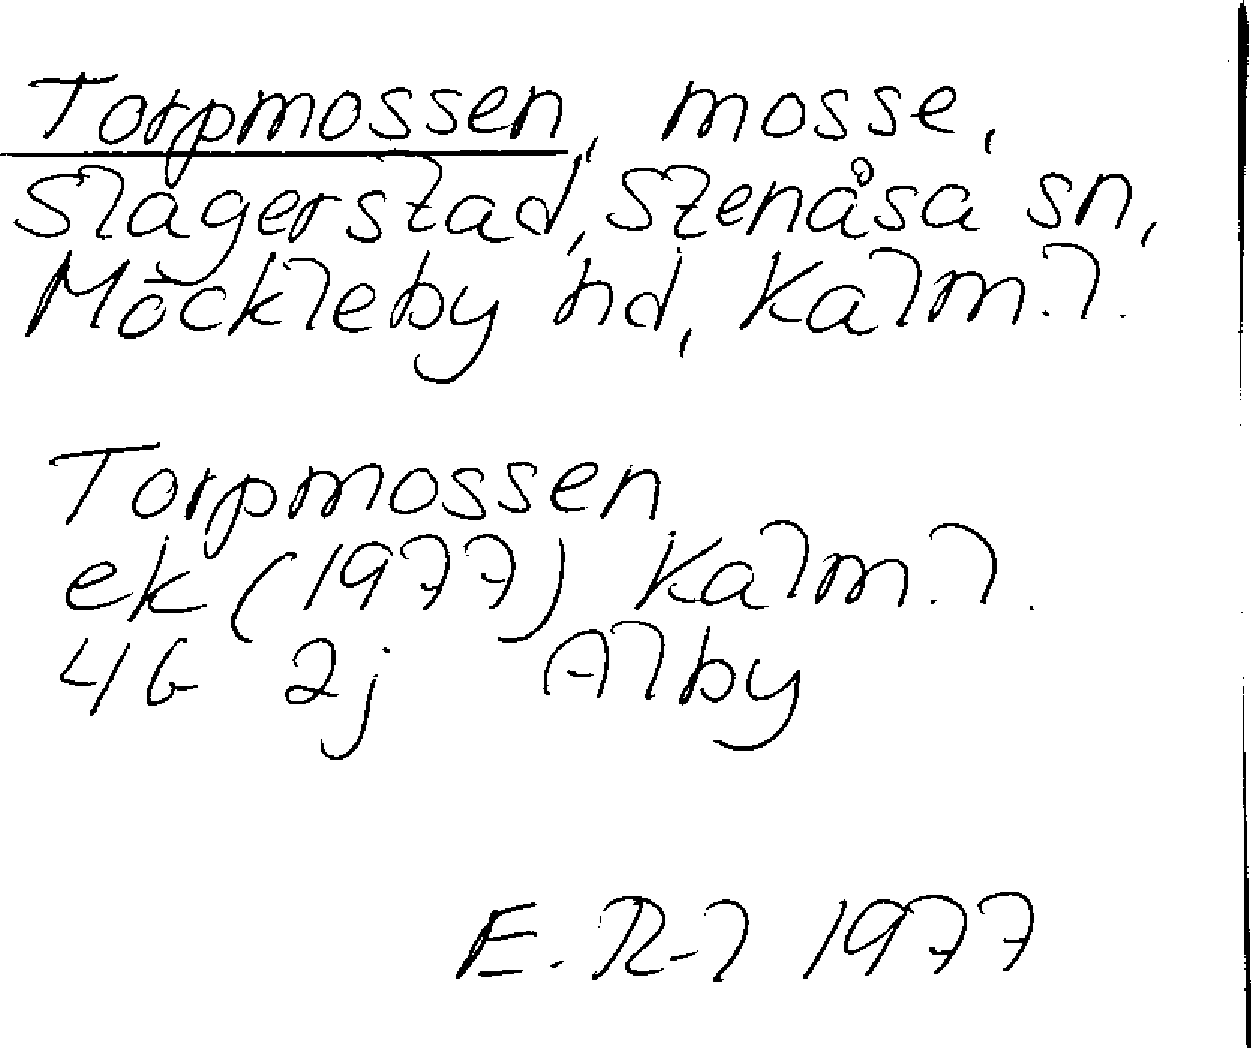 Torpmossen, mosse,
Slagerstad, Stenåsa sn,
Möckleby hd, Kalm. l.
Torpmossen
ek (1977) Kalm. l.
4G 2j Alby
E. R-l 1977